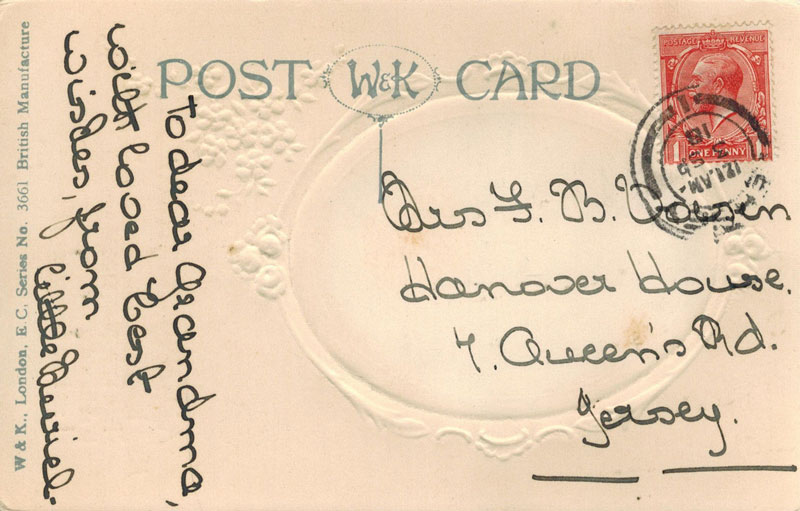 W & K., London, E. C. Series No. 3661 British Manufacture
POST W&K CARD
To dear Grandma,
with loved best
wishes, from
little Muriel.
POSTAGE REVENUE
ONE PENNY
12 AM
Mrs F. B.
Hanover House.
7. Queen's Rd.
Jersey.